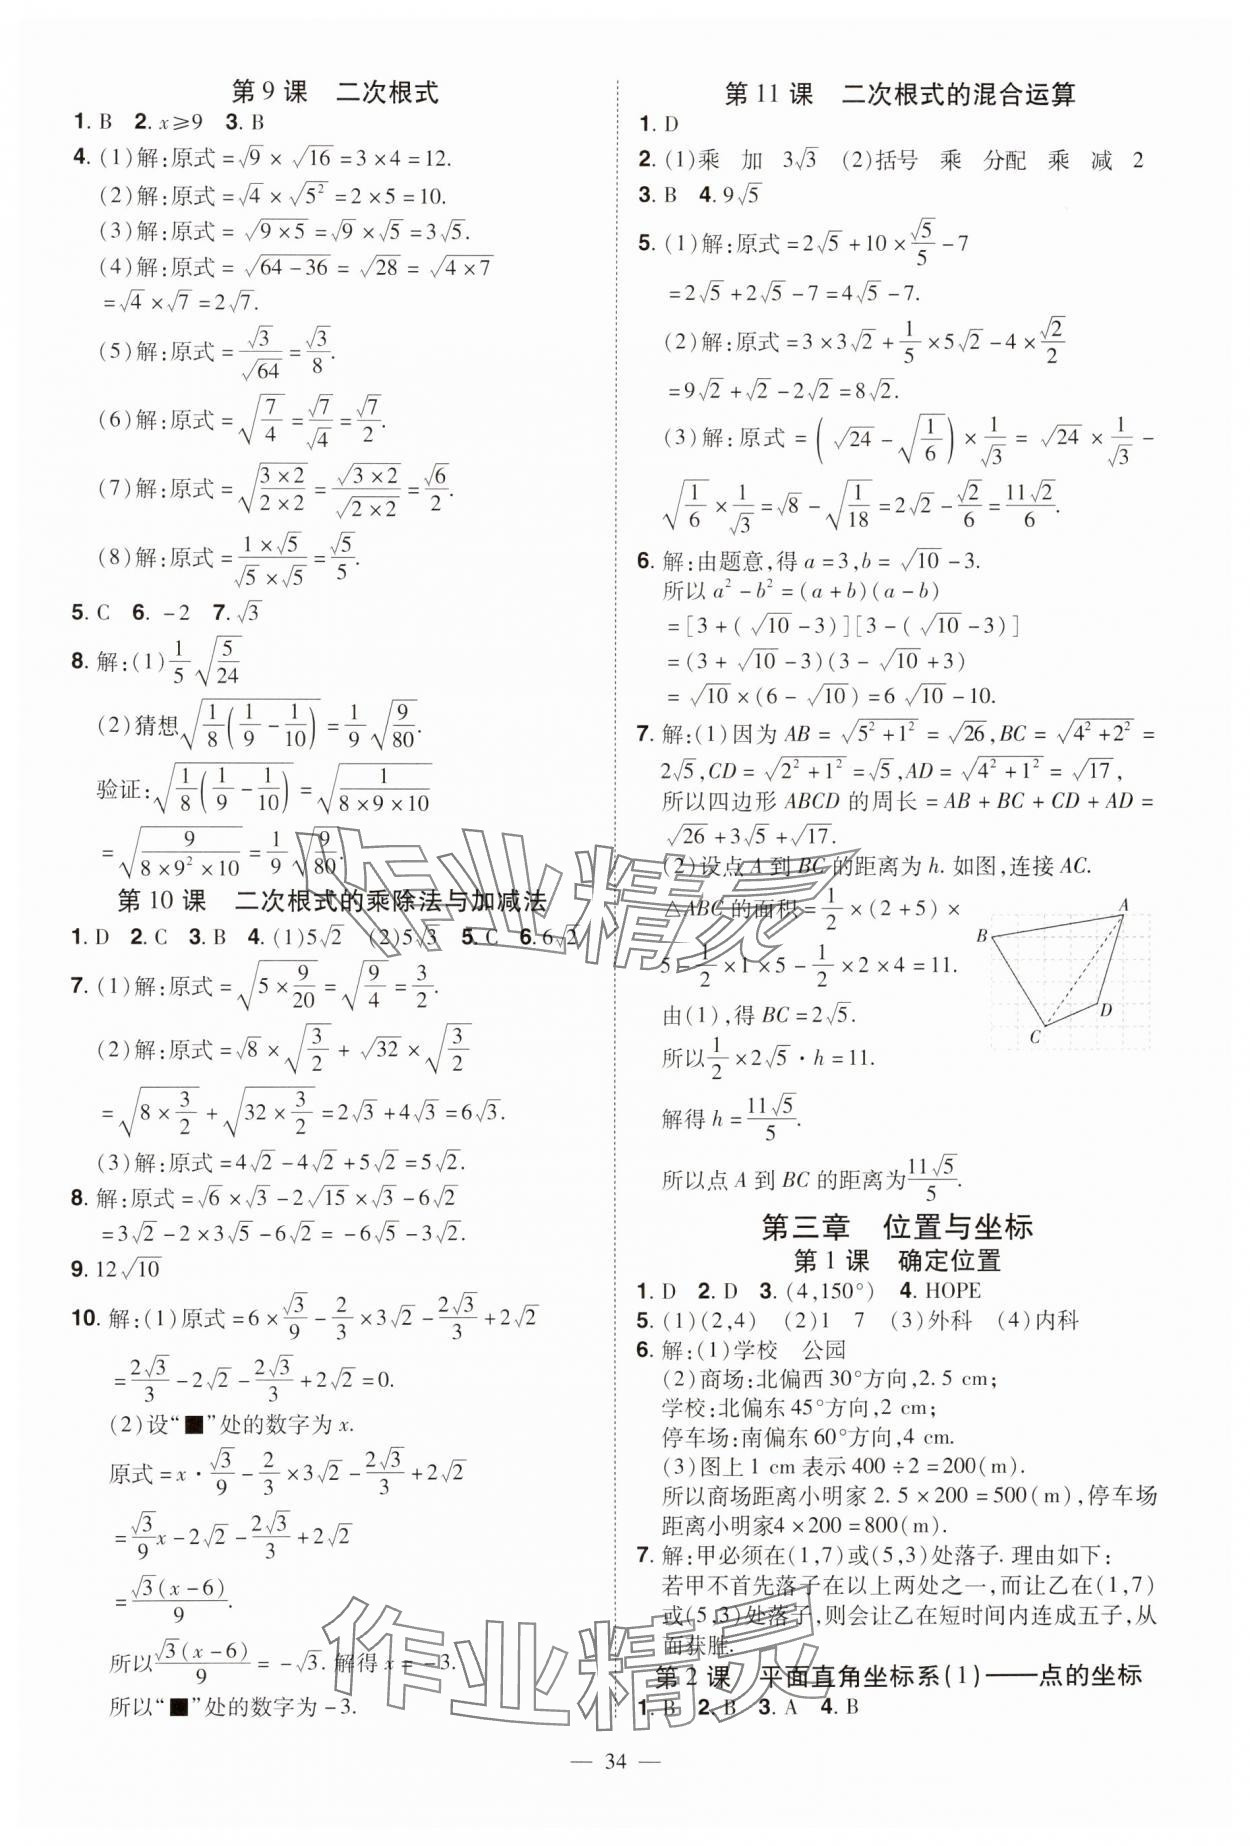 第 9 课　二次根式
1. B　2. x≥9　3. B
4. (1)解:原式=√9×√16=3×4=12.
(2)解:原式=√4×√5²=2×5=10.
(3)解:原式=√(9×5)=√9×√5=3√5.
(4)解:原式=√(64-36)=√28=√(4×7)
=√4×√7=2√7.
(5)解:原式=√3/√64=√3/8.
(6)解:原式=√(7/4)=√7/√4=√7/2.
(7)解:原式=√((3×2)/(2×2))=√(3×2)/√(2×2)=√6/2.
(8)解:原式=(1×√5)/(√5×√5)=√5/5.
5. C　6. -2　7. √3
8. 解:(1)1/5 √(5/24)
(2)猜想√(1/8(1/9-1/10))=1/9 √(9/80).
验证:√(1/8(1/9-1/10))=√(1/(8×9×10))
=√(9/(8×9²×10))=1/9 √(9/80).
第 10 课　二次根式的乘除法与加减法
1. D　2. C　3. B　4. (1)5√2　(2)5√3　5. C　6. 6√2
7. (1)解:原式=√(5×9/20)=√(9/4)=3/2.
(2)解:原式=√8×√(3/2)+√32×√(3/2)
=√(8×3/2)+√(32×3/2)=2√3+4√3=6√3.
(3)解:原式=4√2-4√2+5√2=5√2.
8. 解:原式=√6×√3-2√15×√3-6√2
=3√2-2×3√5-6√2=-6√5-3√2.
9. 12√10
10. 解:(1)原式=6×√3/9-2/3×3√2-2√3/3+2√2
=2√3/3-2√2-2√3/3+2√2=0.
(2)设“■”处的数字为 x.
原式=x·√3/9-2/3×3√2-2√3/3+2√2
=√3/9 x-2√2-2√3/3+2√2
=√3(x-6)/9.
所以√3(x-6)/9=-√3. 解得 x=-3.
所以“■”处的数字为-3.
第 11 课　二次根式的混合运算
1. D
2. (1)乘　加　3√3　(2)括号　乘　分配　乘　减　2
3. B　4. 9√5
5. (1)解:原式=2√5+10×√5/5-7
=2√5+2√5-7=4√5-7.
(2)解:原式=3×3√2+1/5×5√2-4×√2/2
=9√2+√2-2√2=8√2.
(3)解:原式=(√24-√(1/6))×1/√3=√24×1/√3-
√(1/6)×1/√3=√8-√(1/18)=2√2-√2/6=11√2/6.
6. 解:由题意,得 a=3,b=√10-3.
所以 a²-b²=(a+b)(a-b)
=[3+(√10-3)][3-(√10-3)]
=(3+√10-3)(3-√10+3)
=√10×(6-√10)=6√10-10.
7. 解:(1)因为 AB=√(5²+1²)=√26,BC=√(4²+2²)=
2√5,CD=√(2²+1²)=√5,AD=√(4²+1²)=√17,
所以四边形 ABCD 的周长=AB+BC+CD+AD=
√26+3√5+√17.
(2)设点 A 到 BC 的距离为 h. 如图,连接 AC.
△ABC 的面积=1/2×(2+5)×
5-1/2×1×5-1/2×2×4=11.
由(1),得 BC=2√5.
所以1/2×2√5·h=11.
解得 h=11√5/5.
所以点 A 到 BC 的距离为11√5/5.
A
B
D
C
第三章　位置与坐标
第 1 课　确定位置
1. D　2. D　3. (4,150°)　4. HOPE
5. (1)(2,4)　(2)1　7　(3)外科　(4)内科
6. 解:(1)学校　公园
(2)商场:北偏西30°方向,2.5 cm;
学校:北偏东45°方向,2 cm;
停车场:南偏东60°方向,4 cm.
(3)图上 1 cm 表示 400÷2=200(m).
所以商场距离小明家 2.5×200=500(m),停车场
距离小明家4×200=800(m).
7. 解:甲必须在(1,7)或(5,3)处落子. 理由如下:
若甲不首先落子在以上两处之一,而让乙在(1,7)
或(5,3)处落子,则会让乙在短时间内连成五子,从
而获胜.
第 2 课　平面直角坐标系(1)——点的坐标
1. B　2. B　3. A　4. B
— 34 —
作业精灵
作业精灵